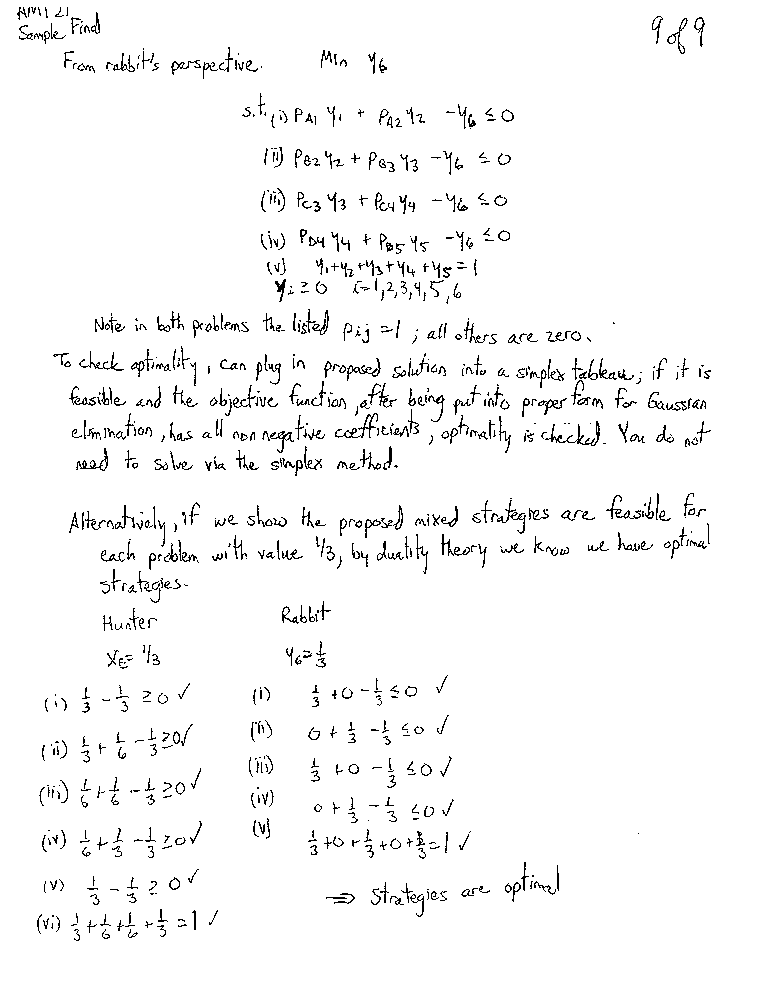 AM121
Sample Final
9 of 9
From rabbit's perspective. Min y₆
s.t. (i) P_A1 y₁ + P_A2 y₂ - y₆ ≤ 0
(ii) P_B2 y₂ + P_B3 y₃ - y₆ ≤ 0
(iii) P_C3 y₃ + P_C4 y₄ - y₆ ≤ 0
(iv) P_D4 y₄ + P_D5 y₅ - y₆ ≤ 0
(v) y₁+y₂+y₃+y₄+y₅ = 1
y_i ≥ 0 i=1,2,3,4,5,6
Note in both problems the listed p_ij = 1 ; all others are zero.
To check optimality, can plug in proposed solution into a simplex tableau; if it is
feasible and the objective function, after being put into proper form for Gaussian
elimination, has all non negative coefficients, optimality is checked. You do not
need to solve via the simplex method.
Alternatively, if we show the proposed mixed strategies are feasible for
each problem with value 1/3, by duality theory we know we have optimal
strategies.
Hunter Rabbit
X_E = 1/3 y₆ = 1/3
(i) 1/3 - 1/3 ≥ 0 ✓ (i) 1/3 + 0 - 1/3 ≤ 0 ✓
(ii) 1/3 + 1/6 - 1/3 ≥ 0 ✓ (ii) 0 + 1/3 - 1/3 ≤ 0 ✓
(iii) 1/6 + 1/6 - 1/3 ≥ 0 ✓ (iii) 1/3 + 0 - 1/3 ≤ 0 ✓
(iv) 1/6 + 1/3 - 1/3 ≥ 0 ✓ (iv) 0 + 1/3 - 1/3 ≤ 0 ✓
(v) 1/3 - 1/3 ≥ 0 ✓ (v) 1/3 + 0 + 1/3 + 0 + 1/3 = 1 ✓
(vi) 1/3 + 1/6 + 1/6 + 1/3 = 1 ✓ ⇒ Strategies are optimal